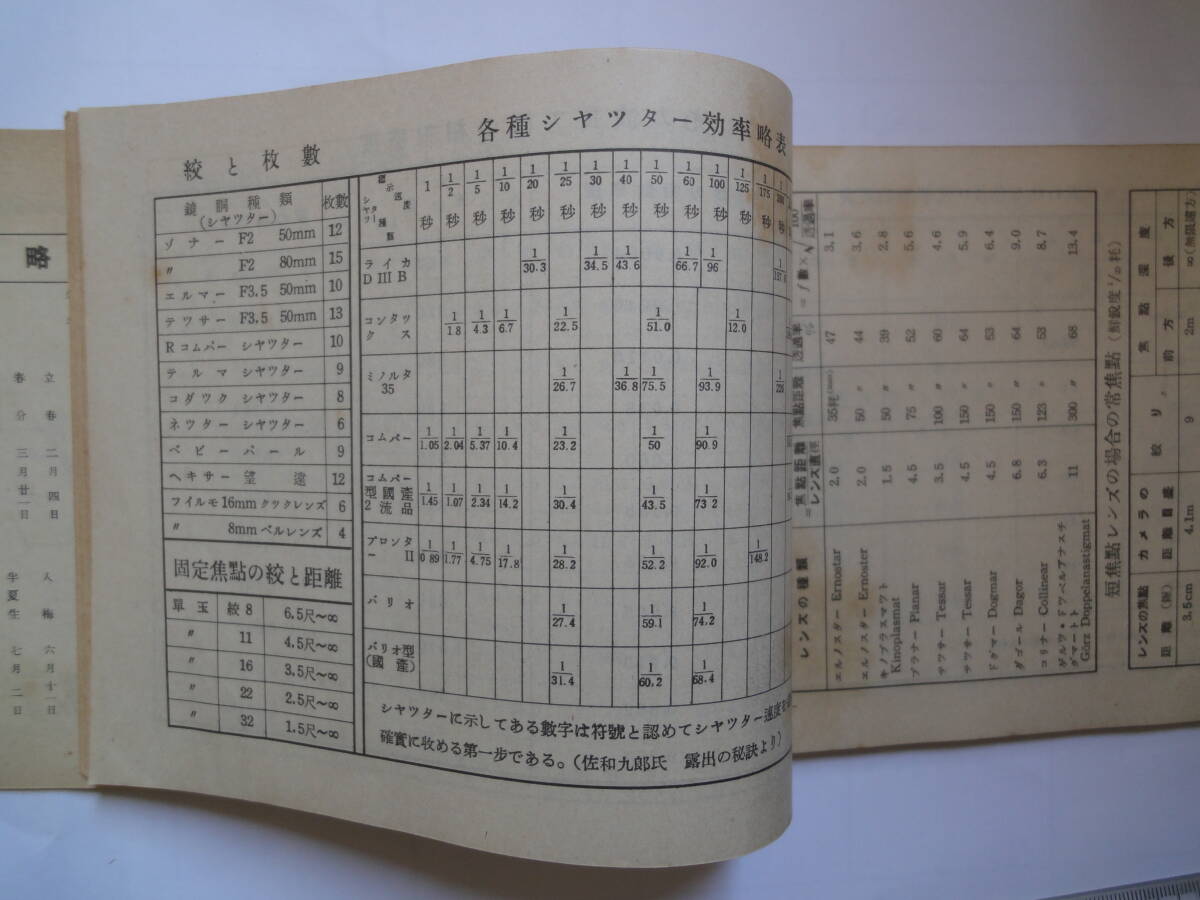 絞と枚數
鏡胴種類 (シヤツター) 枚數
ゾナー F2 50mm 12
〃 F2 80mm 15
エルマー F3.5 50mm 10
テツサー F3.5 50mm 13
Rコムパー シヤツター 10
テルマ シヤツター 9
コダツク シヤツター 8
ネツター シヤツター 6
ベビーパール 9
ヘキサー望遠 12
フイルモ16mmクツクレンズ 6
〃 8mmベルレンズ 4
固定焦點の絞と距離
單玉 絞8 6.5尺～∞
〃 11 4.5尺～∞
〃 16 3.5尺～∞
〃 22 2.5尺～∞
〃 32 1.5尺～∞
各種シヤツター効率略表
標示速度 シヤツター種類 1秒 1/2秒 1/5秒 1/10秒 1/20秒 1/25秒 1/30秒 1/40秒 1/50秒 1/60秒 1/100秒 1/125秒 1/175秒
ライカ DⅢB 1/30.3 1/34.5 1/43.6 1/66.7 1/96
コンタツクス 1/1.8 1/4.3 1/6.7 1/22.5 1/51.0 1/12.0
ミノルタ35 1/26.7 1/36.8 1/75.5 1/93.9
コムパー 1/1.05 1/2.04 1/5.37 1/10.4 1/23.2 1/50 1/90.9
コムパー型國產2流品 1/1.45 1/1.07 1/2.34 1/14.2 1/30.4 1/43.5 1/73.2
プロンターⅡ 1/0.89 1/1.77 1/4.75 1/17.8 1/28.2 1/52.2 1/92.0 1/148.2
バリオ 1/27.4 1/59.1 1/74.2
バリオ型(國產) 1/31.4 1/60.2 1/68.4
シヤツターに示してある數字は符號と認めてシヤツター速度を
確實に收める第一步である。(佐和九郎氏 露出の秘訣より)
レンズの種類 焦點距離 透過率
エルノスター Ernostar 2.0 35粍 47 3.1
エルノスター Ernoster 2.0 50〃 44 3.6
キノプラスマツト Kinoplasmat 1.5 50〃 39 2.8
プラナー Planar 4.5 75〃 52 5.6
テツサー Tessar 3.5 100〃 60 4.6
テツサー Tessar 4.5 150〃 64 5.9
ドグマー Dogmar 4.5 150〃 53 6.4
ダゴール Dagor 6.8 150〃 64 9.0
コリナー Collinear 6.3 123〃 53 8.7
ゲルツ・ドツペルアナスチグマート Görz Doppelanastigmat 11 300〃 68 13.4
短焦點レンズの場合の常焦點
レンズの焦點距離(糎) カメラの距離目盛 絞り 焦點深度 前方 後方
3.5cm 4.1m 9 2m ∞(無限遠方)
立春 二月四日
春分 三月廿一日
入梅 六月十一日
半夏生 七月二日